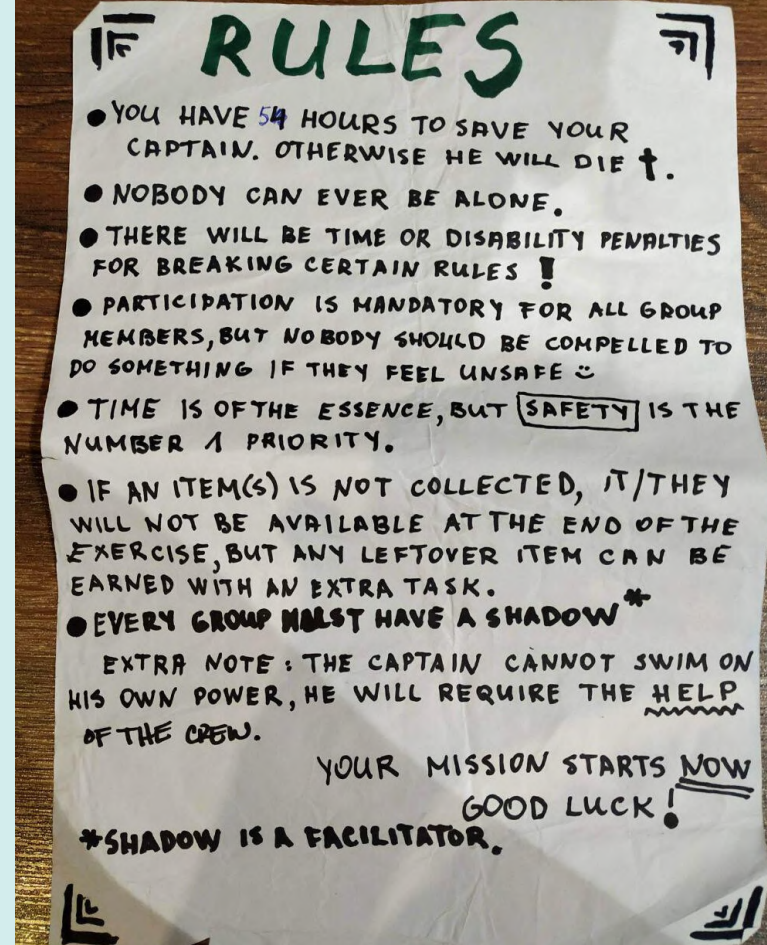 RULES
● YOU HAVE HOURS TO SAVE YOUR
CAPTAIN. OTHERWISE HE WILL DIE ✝.
● NOBODY CAN EVER BE ALONE.
● THERE WILL BE TIME OR DISABILITY PENALTIES
FOR BREAKING CERTAIN RULES !
● PARTICIPATION IS MANDATORY FOR ALL GROUP
MEMBERS, BUT NOBODY SHOULD BE COMPELLED TO
DO SOMETHING IF THEY FEEL UNSAFE :)
● TIME IS OF THE ESSENCE, BUT SAFETY IS THE
NUMBER 1 PRIORITY.
● IF AN ITEM(S) IS NOT COLLECTED, IT/THEY
WILL NOT BE AVAILABLE AT THE END OF THE
EXERCISE, BUT ANY LEFTOVER ITEM CAN BE
EARNED WITH AN EXTRA TASK.
● EVERY GROUP MUST HAVE A SHADOW*
EXTRA NOTE: THE CAPTAIN CANNOT SWIM ON
HIS OWN POWER, HE WILL REQUIRE THE HELP
OF THE CREW.
YOUR MISSION STARTS NOW
GOOD LUCK!
*SHADOW IS A FACILITATOR.